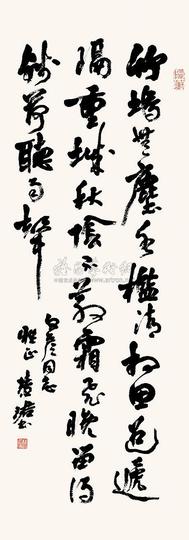 竹塢無塵水檻清相思迢遞
隔重城秋陰不散霜飛晚留得
殘荷聽雨聲
同志
雅正